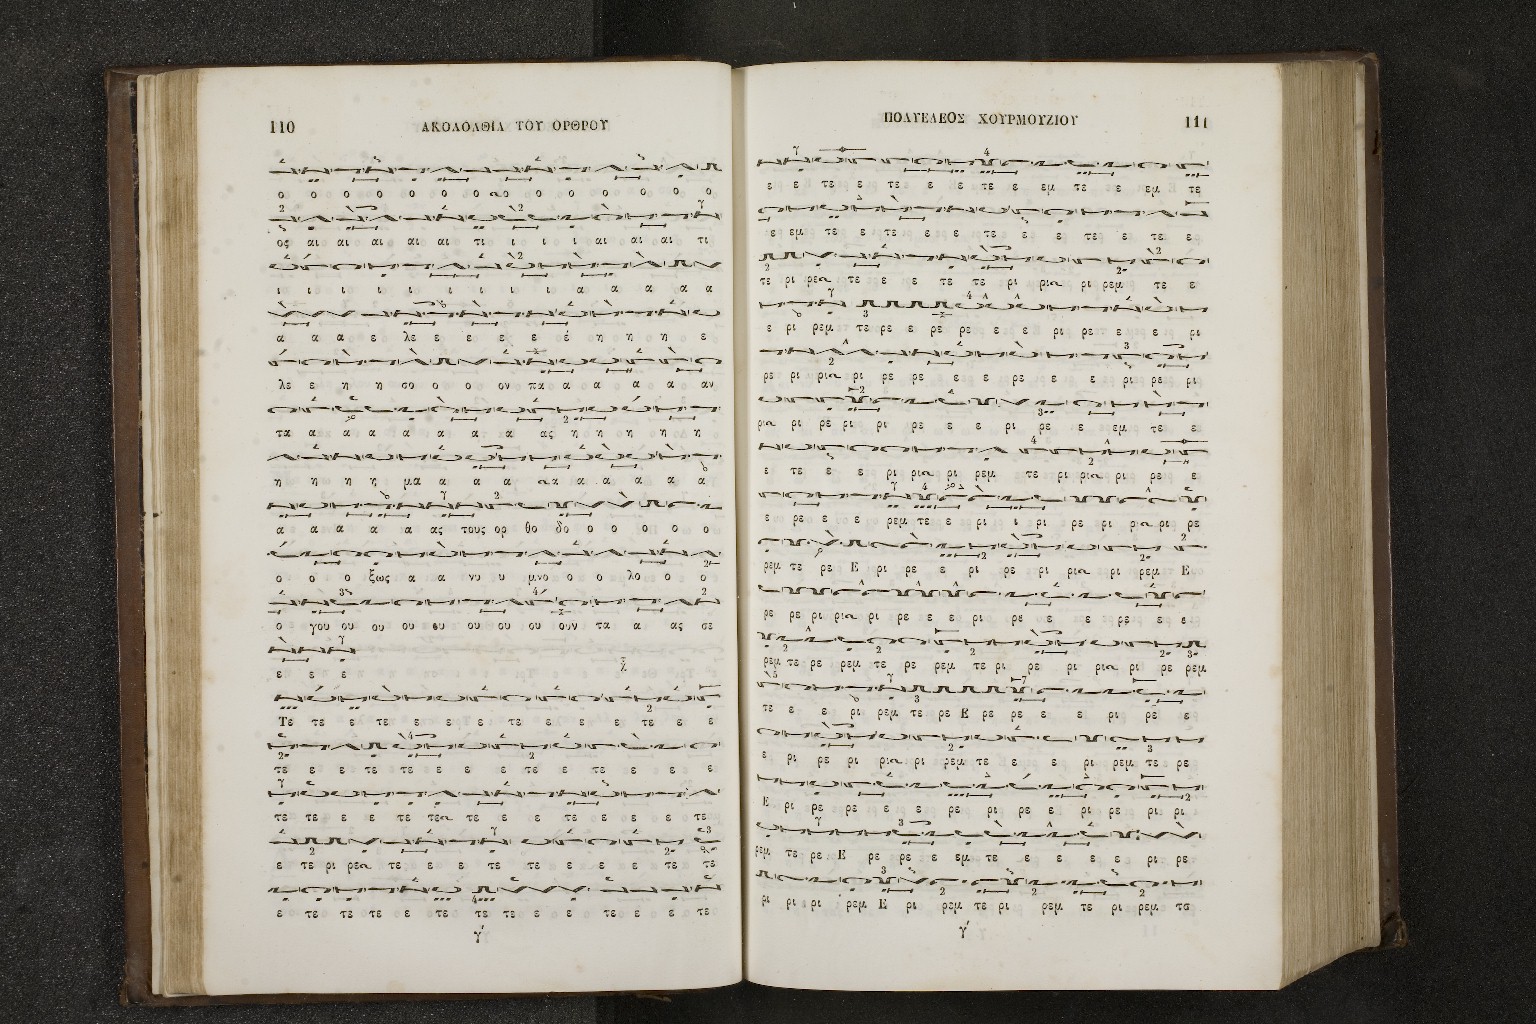 110 ΑΚΟΛΟΛΘΙΑ ΤΟΥ ΟΡΘΡΟΥ
ο ο ο ο ο ο ο ο ο ο ο ο ο ο
ος αι αι αι αι αι τι ι ι ι αι αι αι τι
ι ι ι ι ι ι ι ι ι α α α α α
α α α ε λε ε ε ε ε έ η η η ε
λε ε η η σο ο ο ον πα α α α α α αν
τα α α α α α α α ας η η η η η
η η η η μα α α α α α α α α α
α α α α α ας τους ορ θο δο ο ο ο ο ο
ο ο ο ξως α α νυ υ μνο ο ο λο ο ο
ο γου ου ου ου ου ου ου ου ουν τα α ας σε
ε ε ε
Τε τε ε τε ε ε ε τε ε ε ε τε ε ε
τε ε ε τε τε ε ε ε τέ ε τε ε ε ε
τε τε ε ε τε τε τε ε ε τε ε ε ε ε τε
ε τε ρι ρε τε ε ε τε τε ε ε ε τε τε
ε τε τε τε ε τε τε τε ε ε τε ε ε τε
γ́
ΠΟΛΥΕΛΕΟΣ ΧΟΥΡΜΟΥΖΙΟΥ 111
ε ε τε ε τε ε ε τε ε εμ τε ε εμ τε
ε εμ τε ε τε ε ε τε ε ε τε ε τε ε
τε ρι ρε τε ε ε τε τε ρι ρι ρι ρεμ τε ε
ε ρι ρεμ τε ρε ε ρε ρε ε ε ρι ρε ε ε ρι
ρε ρι ρι ρι ρε ρε ε ε ρε ε ε ρι ρε ρι
ρι ρι ρε ρι ρι ρε ε ε ρι ρε ε εμ τε ε
ε τε ε ε ρι ρι ρι ρεμ τε ρι ρι ρι ρε ε
ε ρε ε ε ρεμ τε ε ρι ι ρι ρε ρι ρι ρι ρε
ρεμ τε ρε Ε ρι ρε ε ρι ρε ρι ρι ρι ρεμ Ε
ρε ρε ρι ρι ρι ρε ε ε ρι ρε ε ρε ε ε
ρεμ τε ρε ρεμ τε ρε ρεμ τε ρι ρε ρι ρι ρι ρε ρεμ
τε ε ε ρι ρεμ τε ρε Ε ρε ρε ε ε ρι ρε ε
ε ρι ρε ρι ρι ρι ρεμ τε ε ε ρι ρεμ τε ρε
Ε ρι ρε ρε ε ε ρε ρι ρε ε ρι ρε ρι ρι
ρεμ τε ρε Ε ρε ρε ε εμ τε ε ε ε ε ρι ρε
ρι ρι ρι ρεμ Ε ρι ρεμ τε ρι ρεμ τε ρι ρεμ τα
γ́